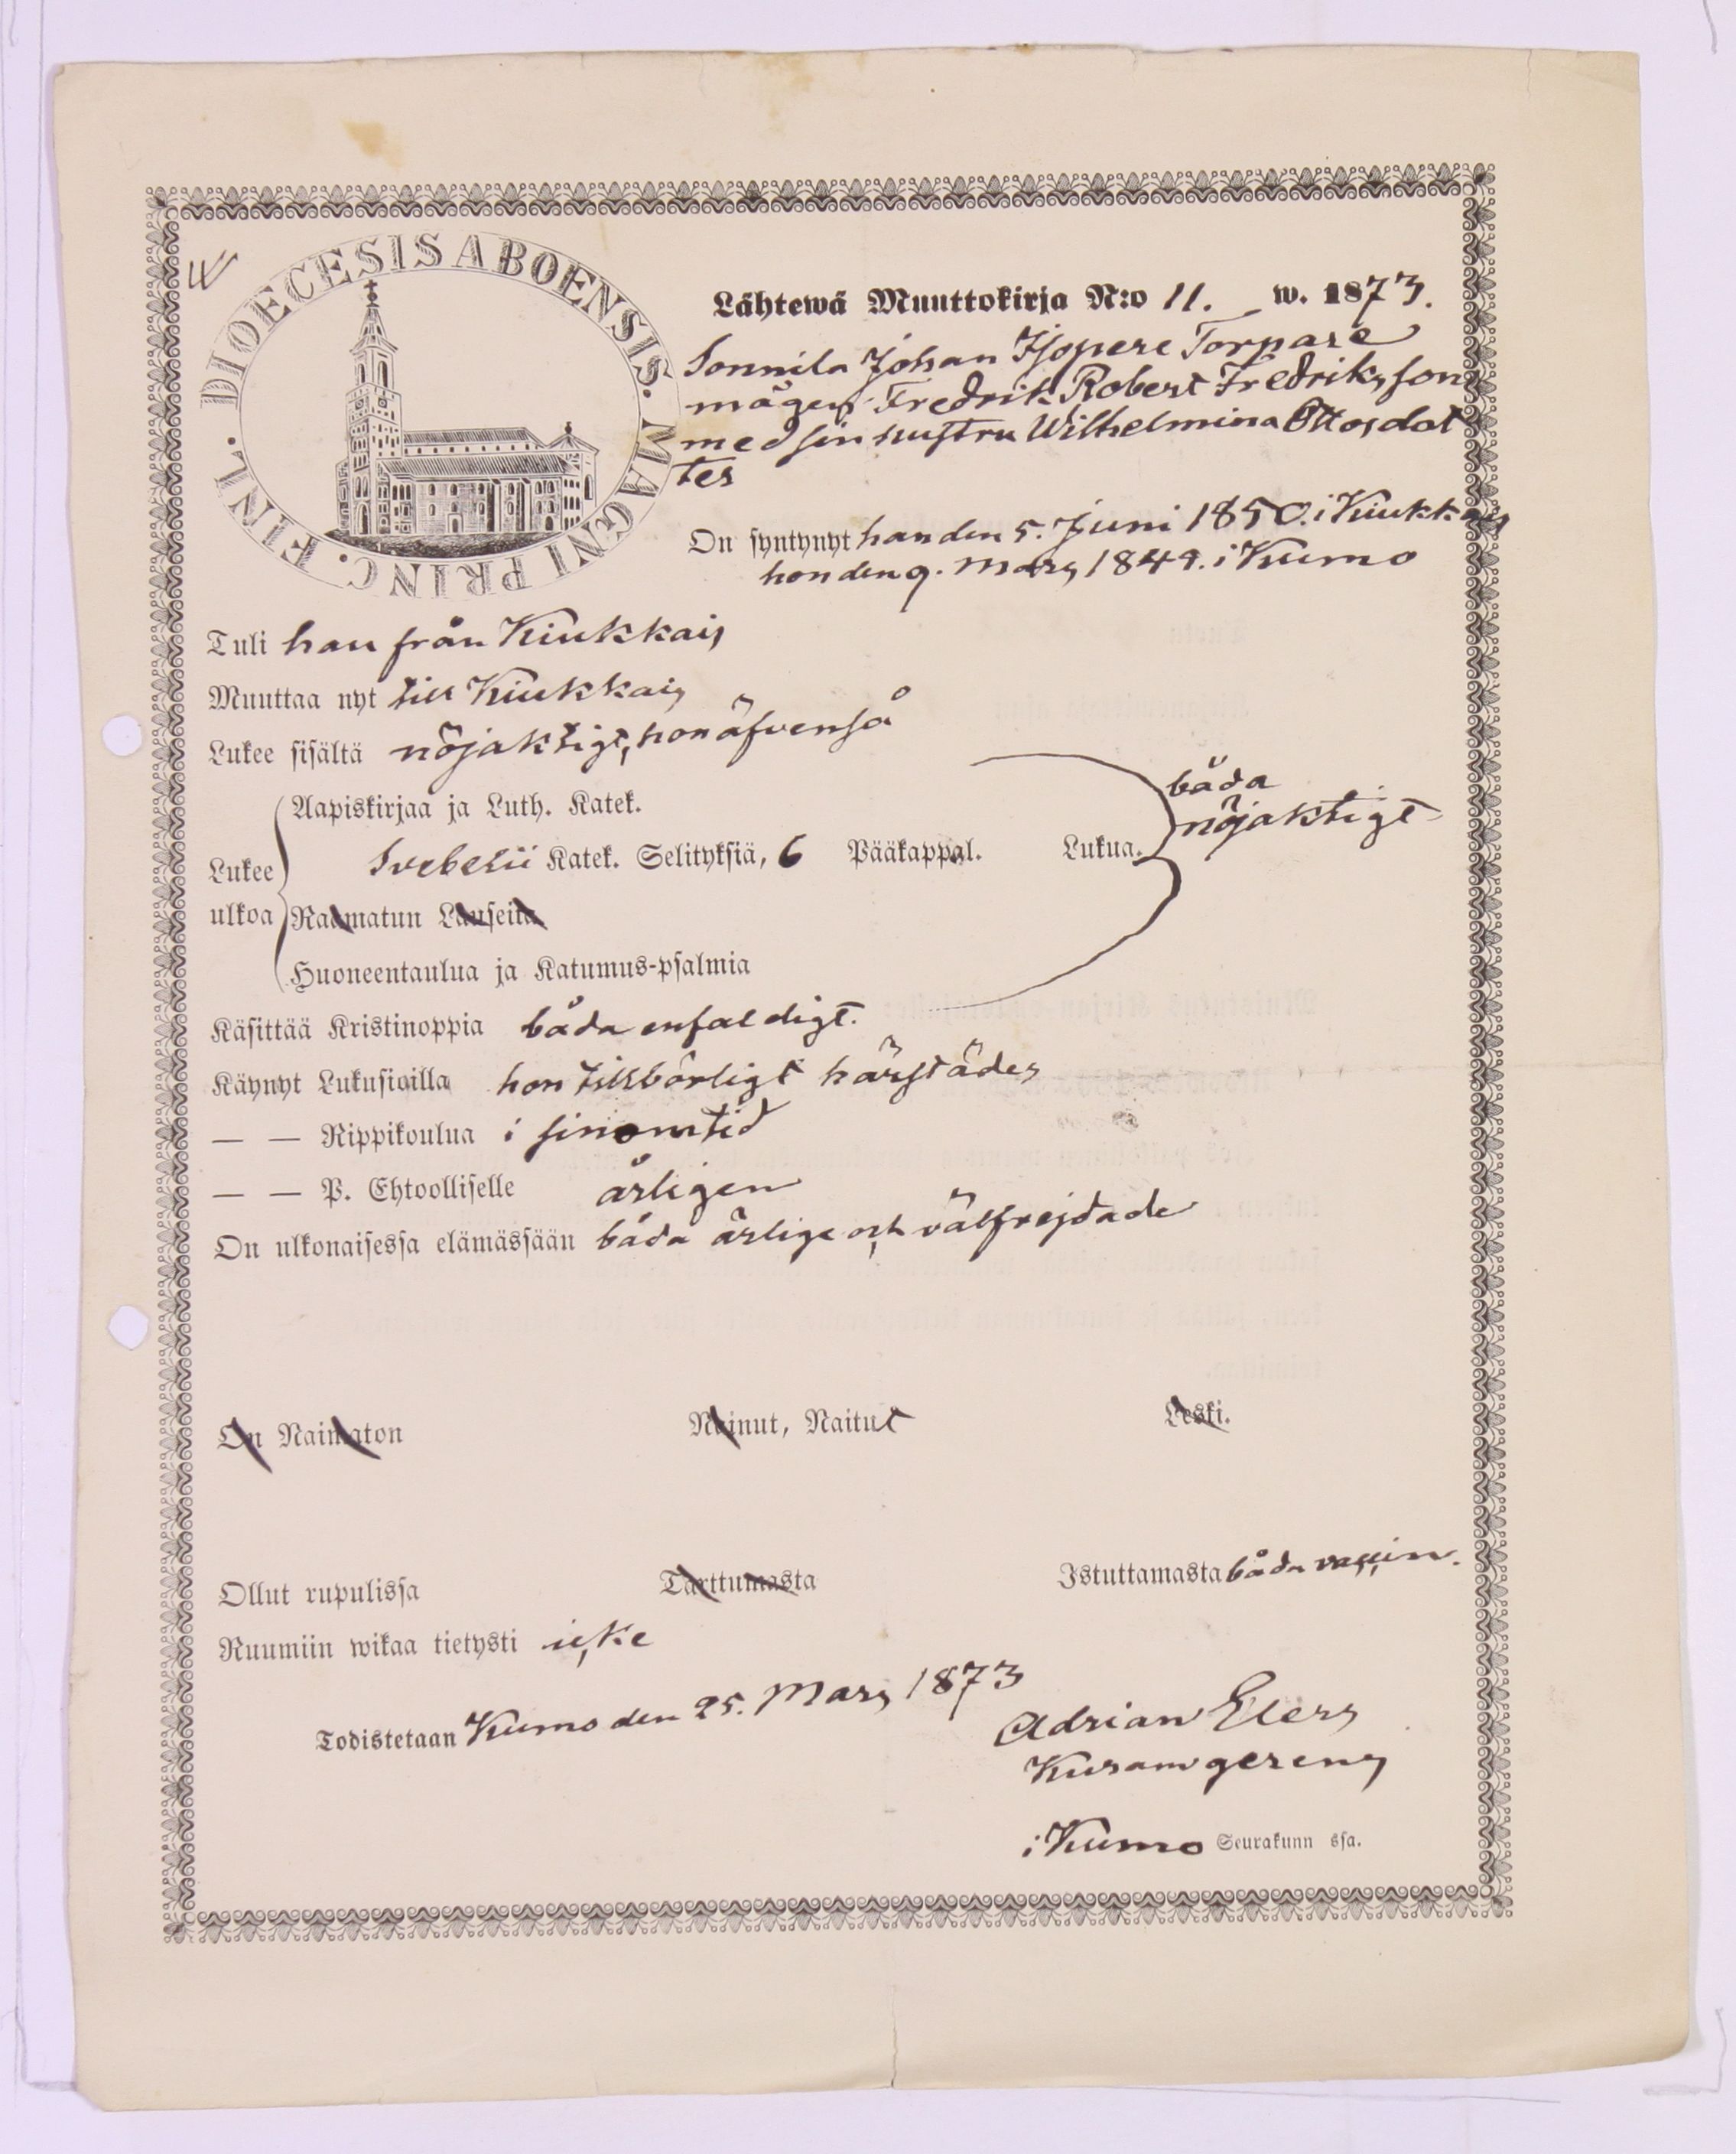 DIOECESIS ABOENSIS. MAGNI PRINC. FINL.
Lähtewä Muuttokirja N:o 11. w. 1873.
Sonnila Johan Isopere Torpare
mågen Fredrik Robert Fredriksson
med sin hustru Wilhelmina Ottosdot
ter
On syntynyt han den 5. Juni 1850. i Kiukkais
hon den 9. Mars 1849. i Kumo
Tuli han från Kiukkais
Muuttaa nyt till Kiukkais
Lukee sisältä nöjaktigt, hon äfvenså
Aapiskirjaa ja Luth. Katek.
båda
nöjaktigt
Lukee ulkoa
Svebelii Katek. Selityksiä, 6 Pääkappal. Lukua.
Raamatun Lauseita
Huoneentaulua ja Katumus-psalmia
Käsittää Kristinoppia båda enfaldigt.
Käynyt Lukusioilla hon tillbörligt härstädes
— — Rippikoulua i sinom tid
— — P. Ehtoolliselle årligen
On ulkonaisessa elämässään båda ärlige och välfrejdade
On Naimaton Nainut, Naitut Leski.
Ollut rupulissa Tarttumasta Istuttamasta båda vaccin.
Ruumiin wikaa tietysti icke
Todistetaan Kumo den 25. Mars 1873
Adrian Elers
Kusamgereny
i Kumo Seurakunn ssa.